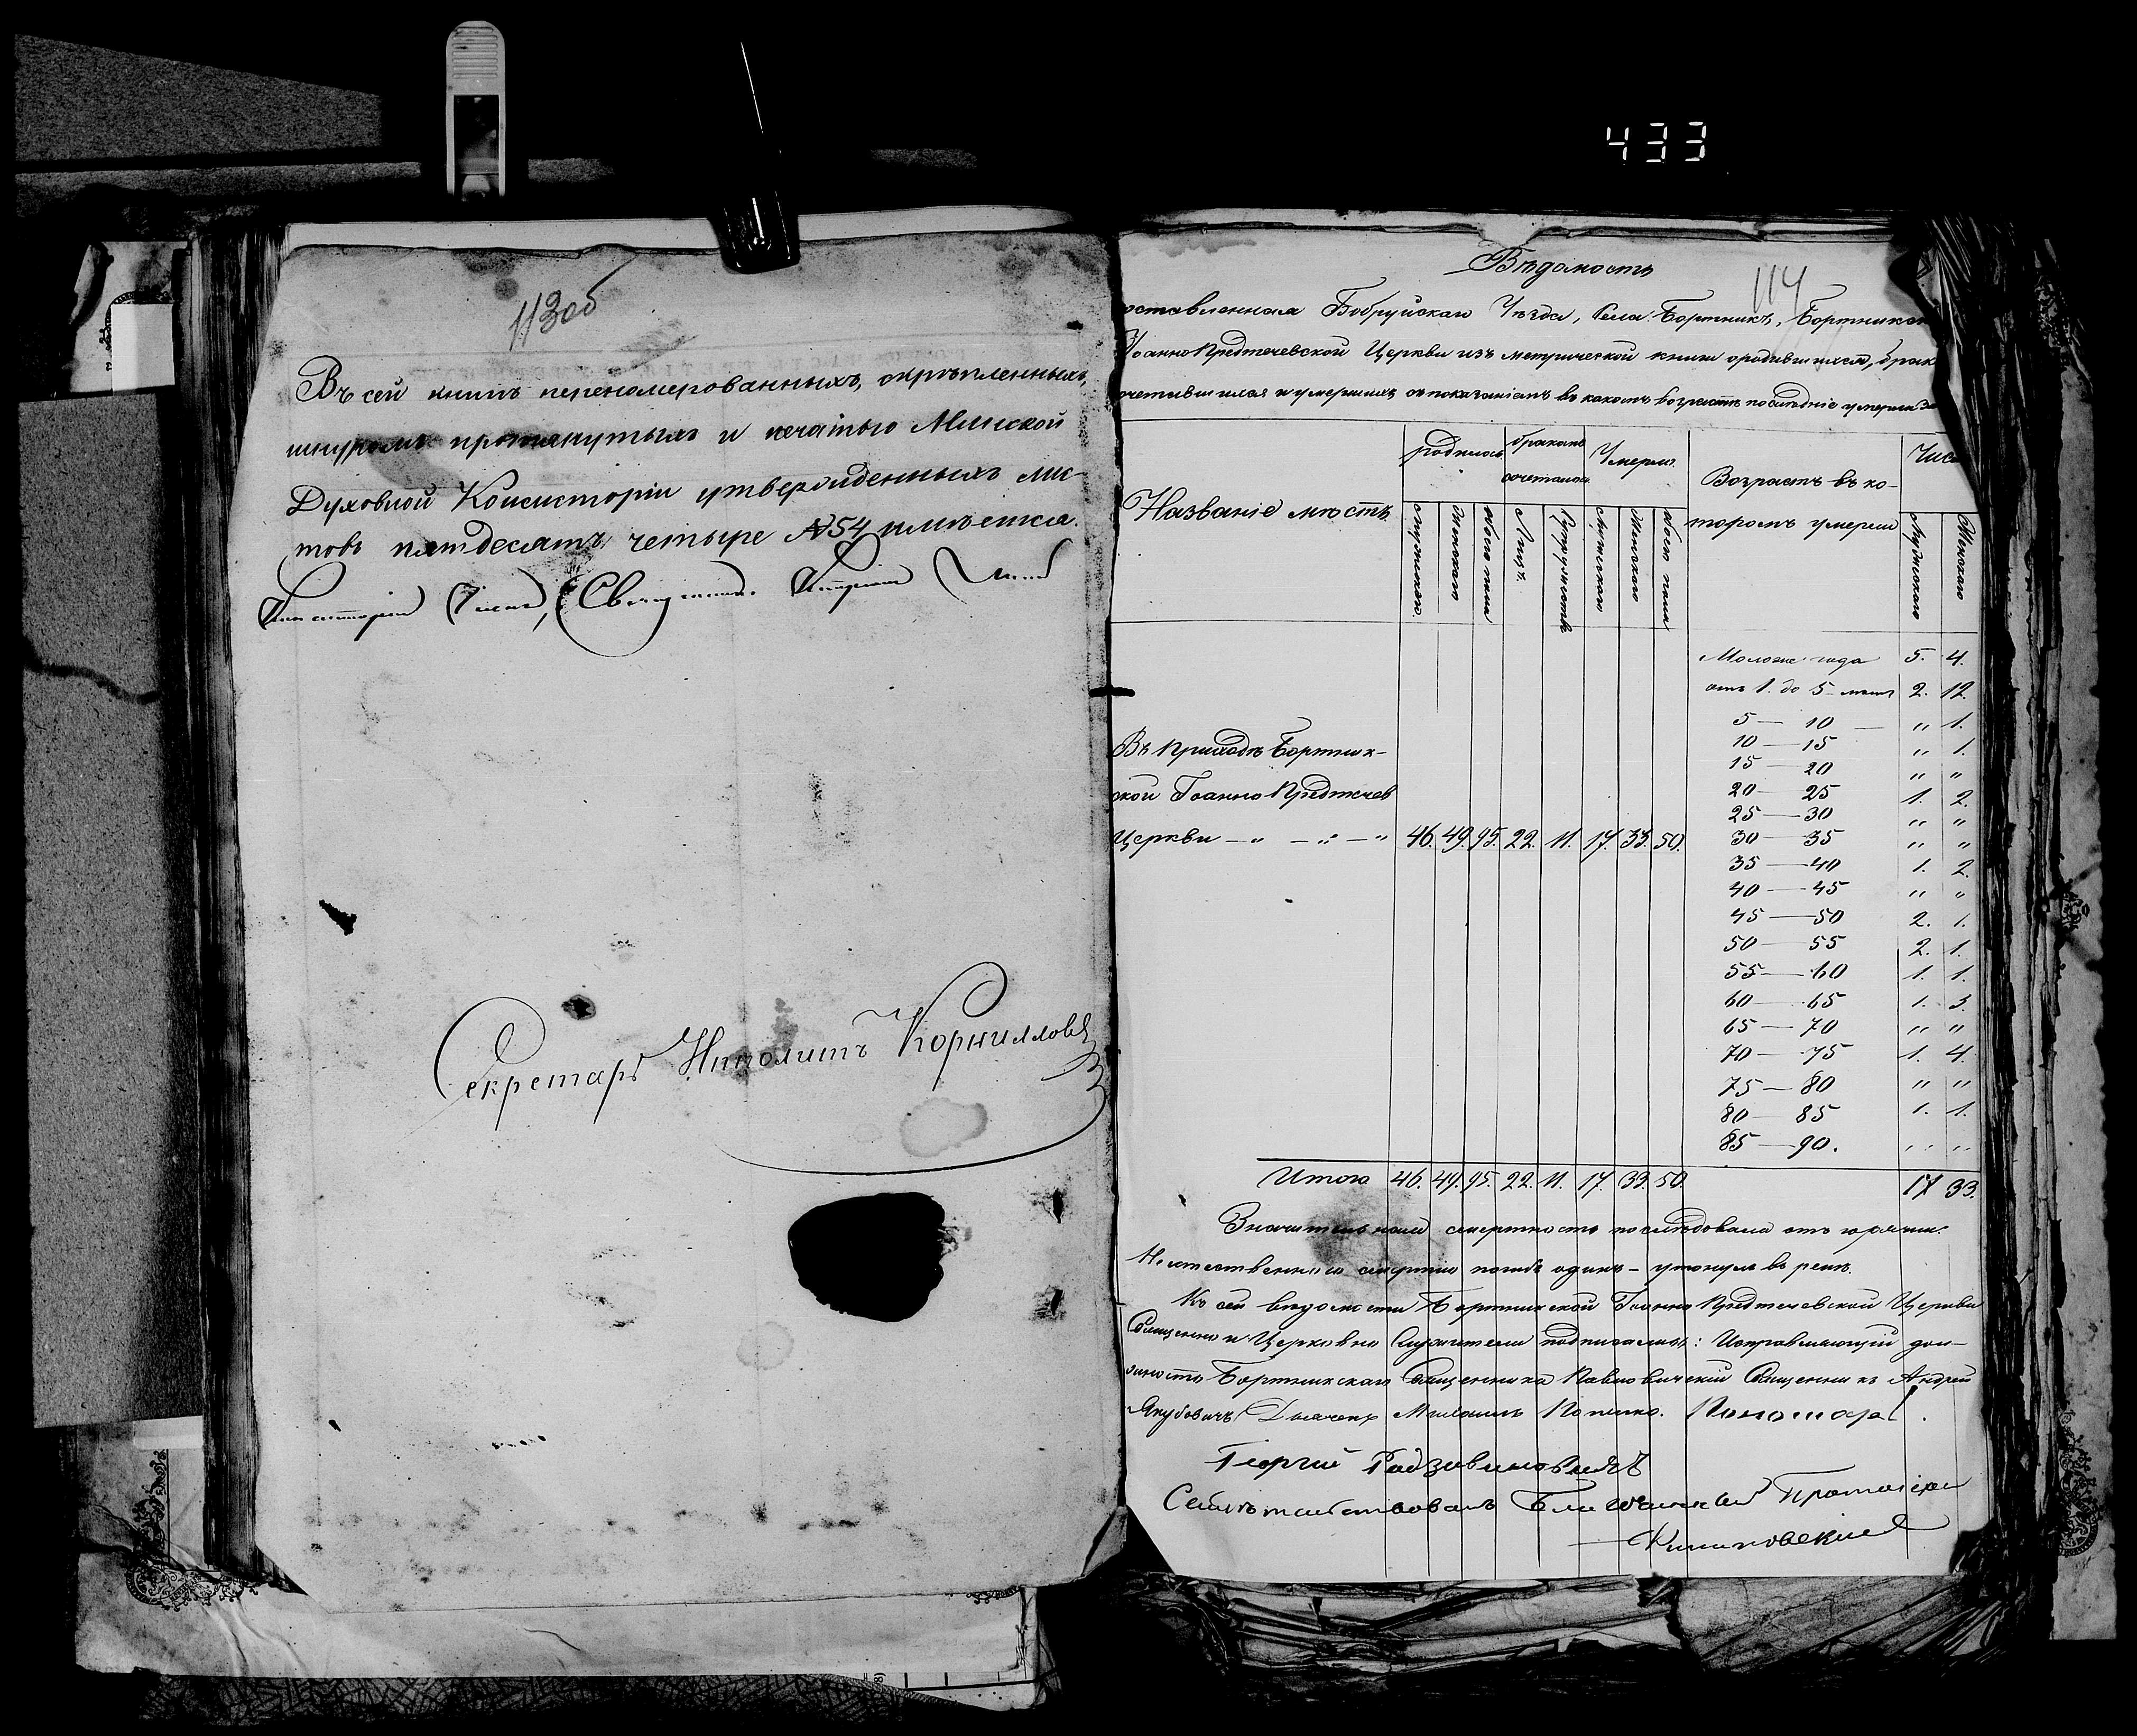 433
113 об
Въ сей книгѣ перенумерованныхъ, скрѣпленныхъ,
шнуромъ протянутыхъ и печатью Минской
Духовной Консисторіи утвержденныхъ лис-
товъ пятдесятъ четыре №54 имѣется.
Консисторіи Членъ, Священникъ
Секретарь Ипполитъ Корнилловъ
114
Вѣдомость
оставленная Бобруйскаго Уѣзда, Села Бортникъ, Бортникск
Іоанно Предтечевской Церкви изъ метрической книги о родившихся, брак
очетавшихся и умершихъ съ показаніемъ въ какомъ возрастѣ послѣдніе умерли за
Названіе мѣстъ
родилось
бракомъ сочеталось
Умерло
Возрастъ въ ко-
торомъ умерли
Чис
Мужскаго
Женскаго
обоего пола
Лицъ
Супружествъ
Мужскаго
Женскаго
обоего пола
Мужскаго
Женскаго
Моложе года 5. 4.
отъ 1. до 5 лѣтъ 2. 12.
5 — 10 — „ 1.
10 — 15 „ 1.
15 — 20 „ „
20 — 25 1. 2.
25 — 30 „ „
30 — 35 „ „
35 — 40 1. 2.
40 — 45 „ „
45 — 50 2. 1.
50 — 55 2. 1.
55 — 60 1. 1.
60 — 65 1. 3.
65 — 70 „ „
70 — 75 1. 4.
75 — 80 „ „
80 — 85 1. 1.
85 — 90. „ „
Въ Приходѣ Бортник-
ской Іоанно Предтечев
Церкви — „ — „ — „ 46. 49. 95. 22. 11. 17. 33. 50.
Итого 46. 49. 95. 22. 11. 17. 33. 50. 17 33.
Значительная смертность послѣдовала отъ горячки.
Неестественною смертію погибъ одинъ — утонулъ въ рекѣ.
Къ сей вѣдомости Бортникской Іоанно Предтечевской Церкви
Священно и Церковно Служители подписались: Исправляющій дол-
жность Бортникскаго Священника Павловичскій Священникъ Андрей
Якубовичъ Дьячекъ Михаилъ Пономарь
Георгій
Свидѣтельствовалъ Благочинный Протоіерей